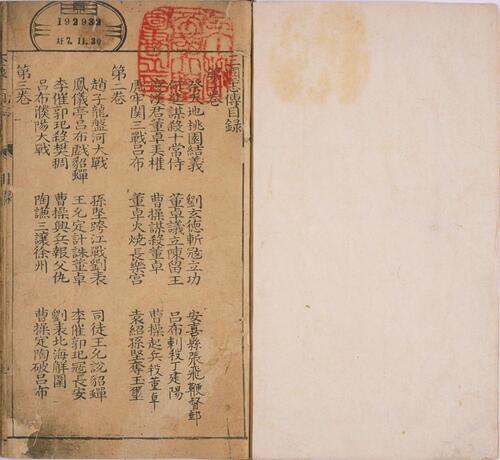 192932
昭7.11.30
三國志傳目錄
卷
祭天地桃園結義 劉玄德斬寇立功 安喜縣張飛鞭督郵
謀殺十常侍 董卓議立陳留王 呂布刺殺丁建陽
漢君董卓弄權 曹操謀殺董卓 曹操起兵殺董卓
虎牢關三戰呂布 董卓火燒長樂宮 袁紹孫堅奪玉璽
第二卷
趙子龍盤河大戰 孫堅跨江戰劉表 司徒王允說貂蟬
鳳儀亭呂布戲貂蟬 王允定計誅董卓 李催郭汜寇長安
李催郭汜殺樊稠 曹操興兵報父仇 劉表北海解圍
呂布濮陽大戰 陶謙三讓徐州 曹操定陶破呂布
第三卷